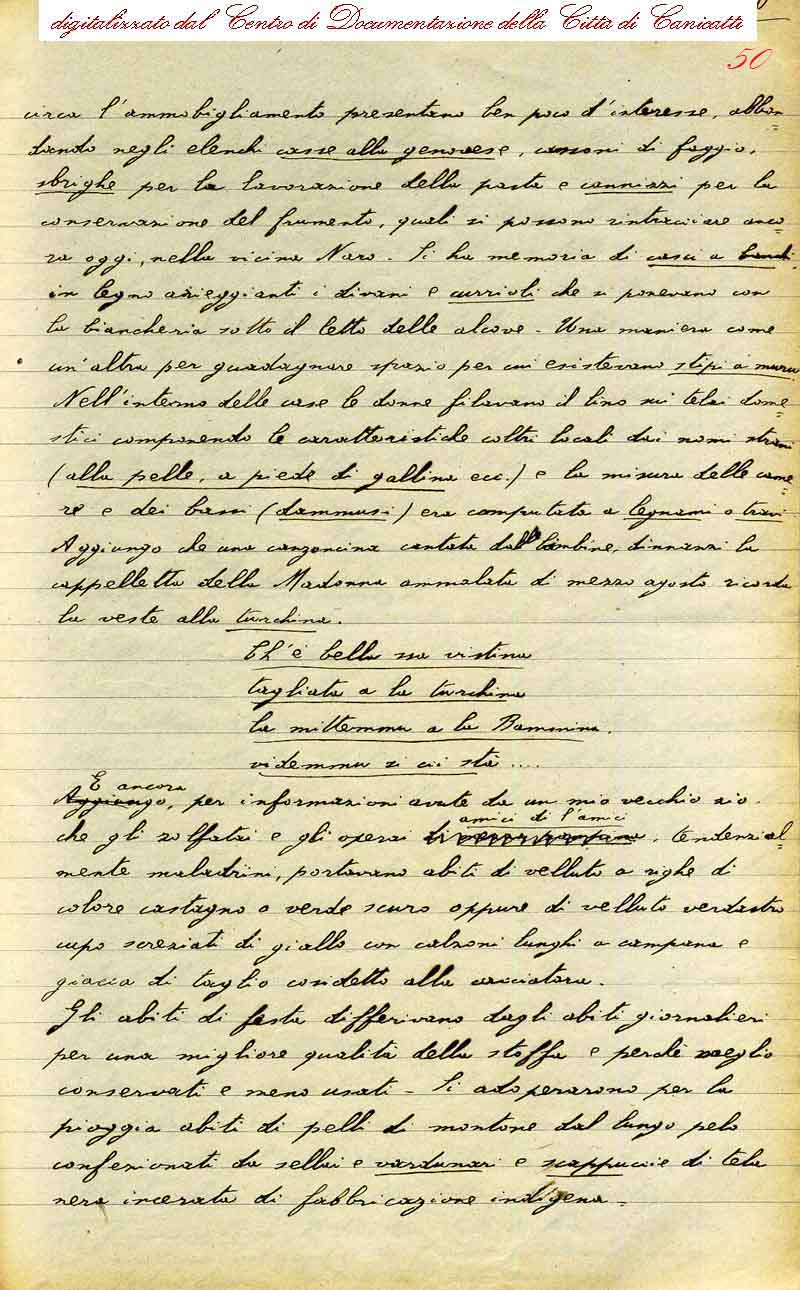 digitalizzato dal Centro di Documentazione della Città di Canicattì
50
circa l'ammobigliamento presentano ben poco d'interesse, abbon=
dando negli elenchi casse alla genovese, cassoni di faggio,
sbrighe per la lavorazione della pasta e cannizzi per la
conservazione del frumento, quali si possono rintracciare anco=
ra oggi, nella vicina Naro. Si ha memoria di casci a
in legno arieggianti i divani e currioli che si ponevano con
la biancheria sotto il letto delle alcove - Una maniera come
un'altra per guadagnare spazio per cui esistevano stipi a muru
Nell'interno delle case le donne filavano il lino sui telai dome=
stici componendo le caratteristiche coltri locali dai nomi strani
(alla pelle, a piede di gallina ecc.) e la misura delle came=
re e dei bassi (dammusi) era computata a legnami o travi
Aggiungo che una canzoncina cantata dalle bambine, dinnanzi la
cappelletta della Madonna ammalata di mezzo agosto ricorda
la veste alla turchina.
Ch'è bella ssa vistina
tagliata a la turchina
la mittemmu a la Bammina.
videmmu si cci stà ....
E ancora
Aggiungo, per informazioni avute da un mio vecchio zio.
amici di l'amici
che gli zolfatai e gli operai di , tendenzial=
mente maladrini, portavano abiti di velluto a righe di
colore castagno o verde scuro oppure di velluto verdastro
cupo screziati di giallo con calzoni lunghi a campana e
giacca di taglio cosidetto alla cacciatora.
Gli abiti di festa differivano dagli abiti giornalieri
per una migliore qualità della stoffa e perchè meglio
conservati e meno usati - Si adoperarono per la
pioggia abiti di pelli di montone dal lungo pelo
confezionati da sellai e vardunari e scappuccie di tela
nera incerata di fabbricazione indigena -